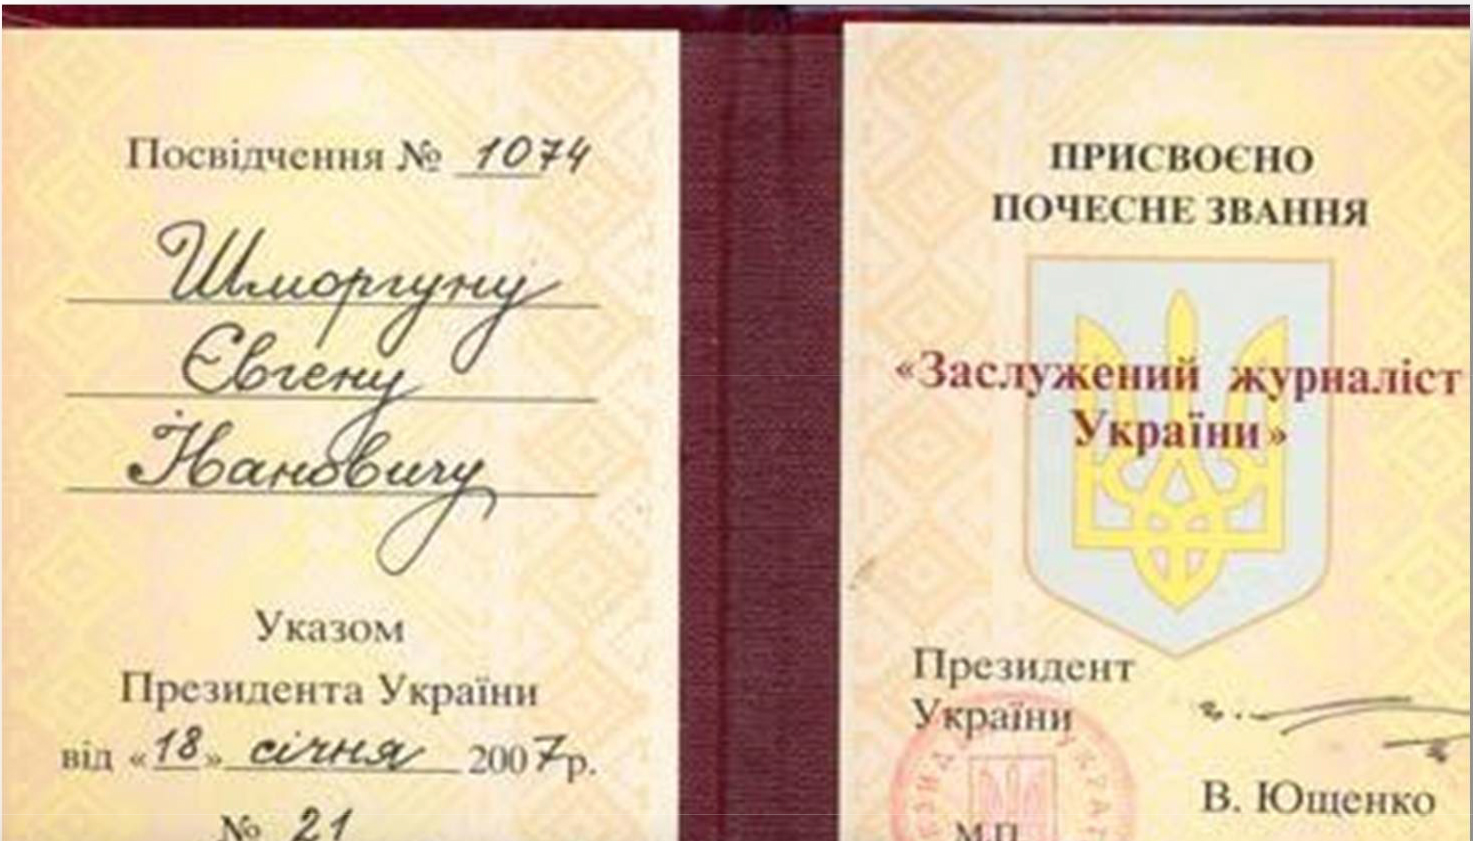 Посвідчення № 1074
Шморгуну
Євгену
Івановичу
Указом
Президента України
від «18» січня 2007р.
№ 21
ПРИСВОЄНО
ПОЧЕСНЕ ЗВАННЯ
«Заслужений журналіст
України»
Президент
України
М.П.
В. Ющенко